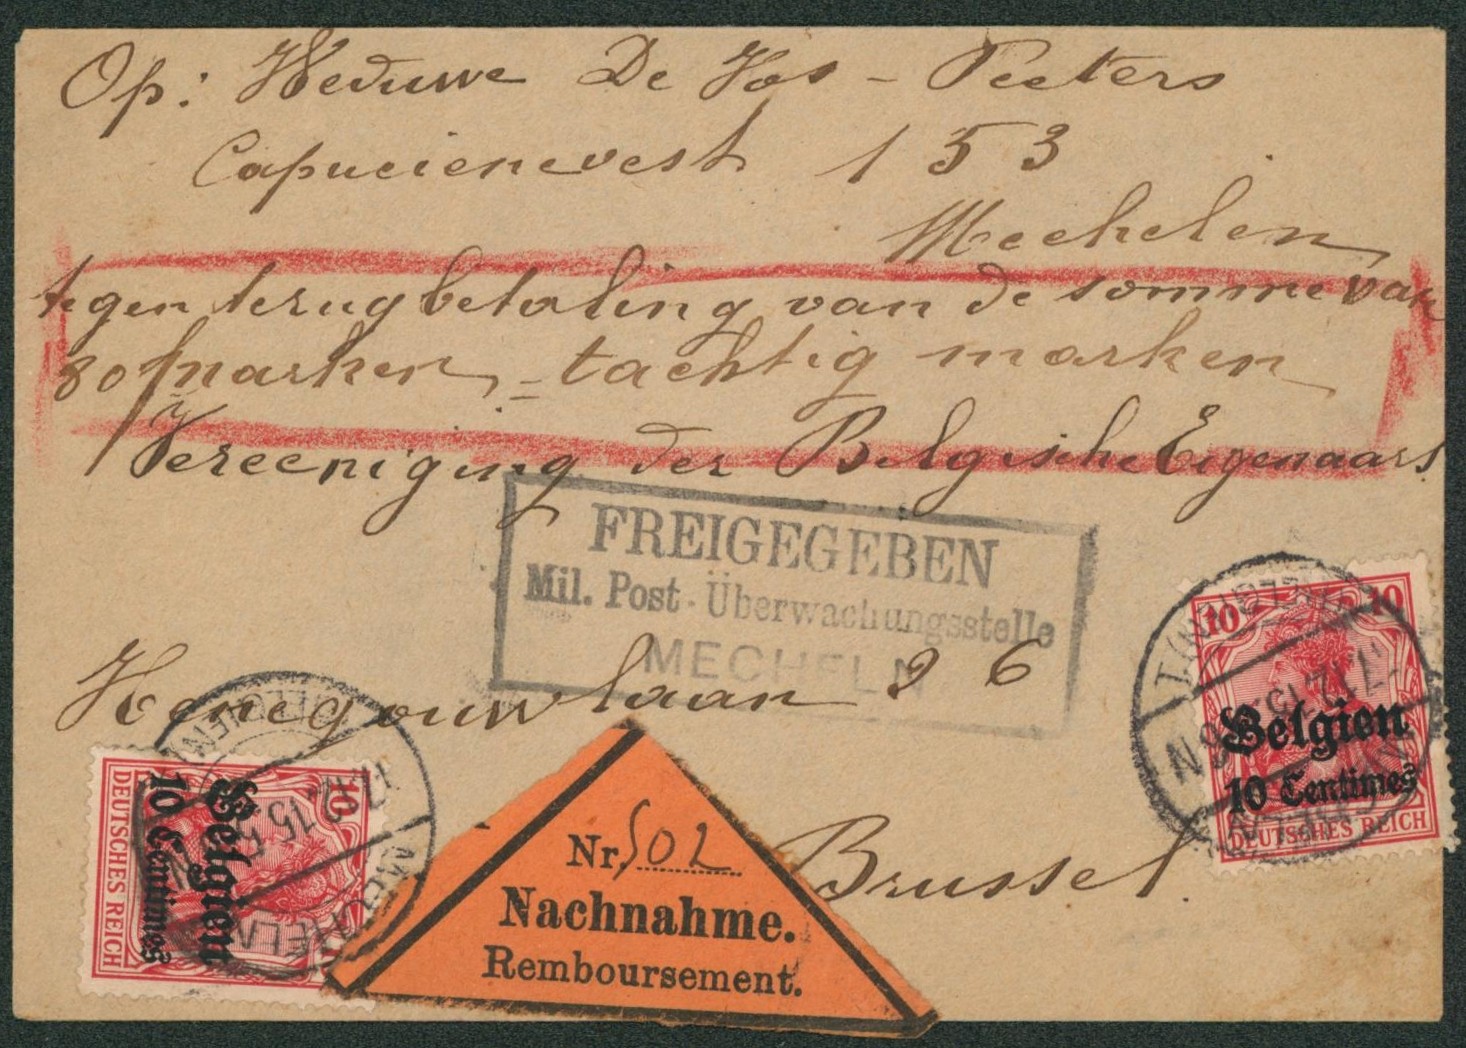 Op: Weduwe De Jos - Peeters
Capucienevest 153
Mechelen
tegen terugbetaling van de somme van
80 marken = tachtig marken
Vereeniging der Belgische Eigenaars
FREIGEGEBEN
Mil. Post-Überwachungsstelle
MECHELN
Henegouwlaan 26
Brussel.
10 10
Belgien
10 Centimes
DEUTSCHES REICH
10
Belgien
10 Centimes
DEUTSCHES REICH
MECHELN
Nr. 502
Nachnahme.
Remboursement.